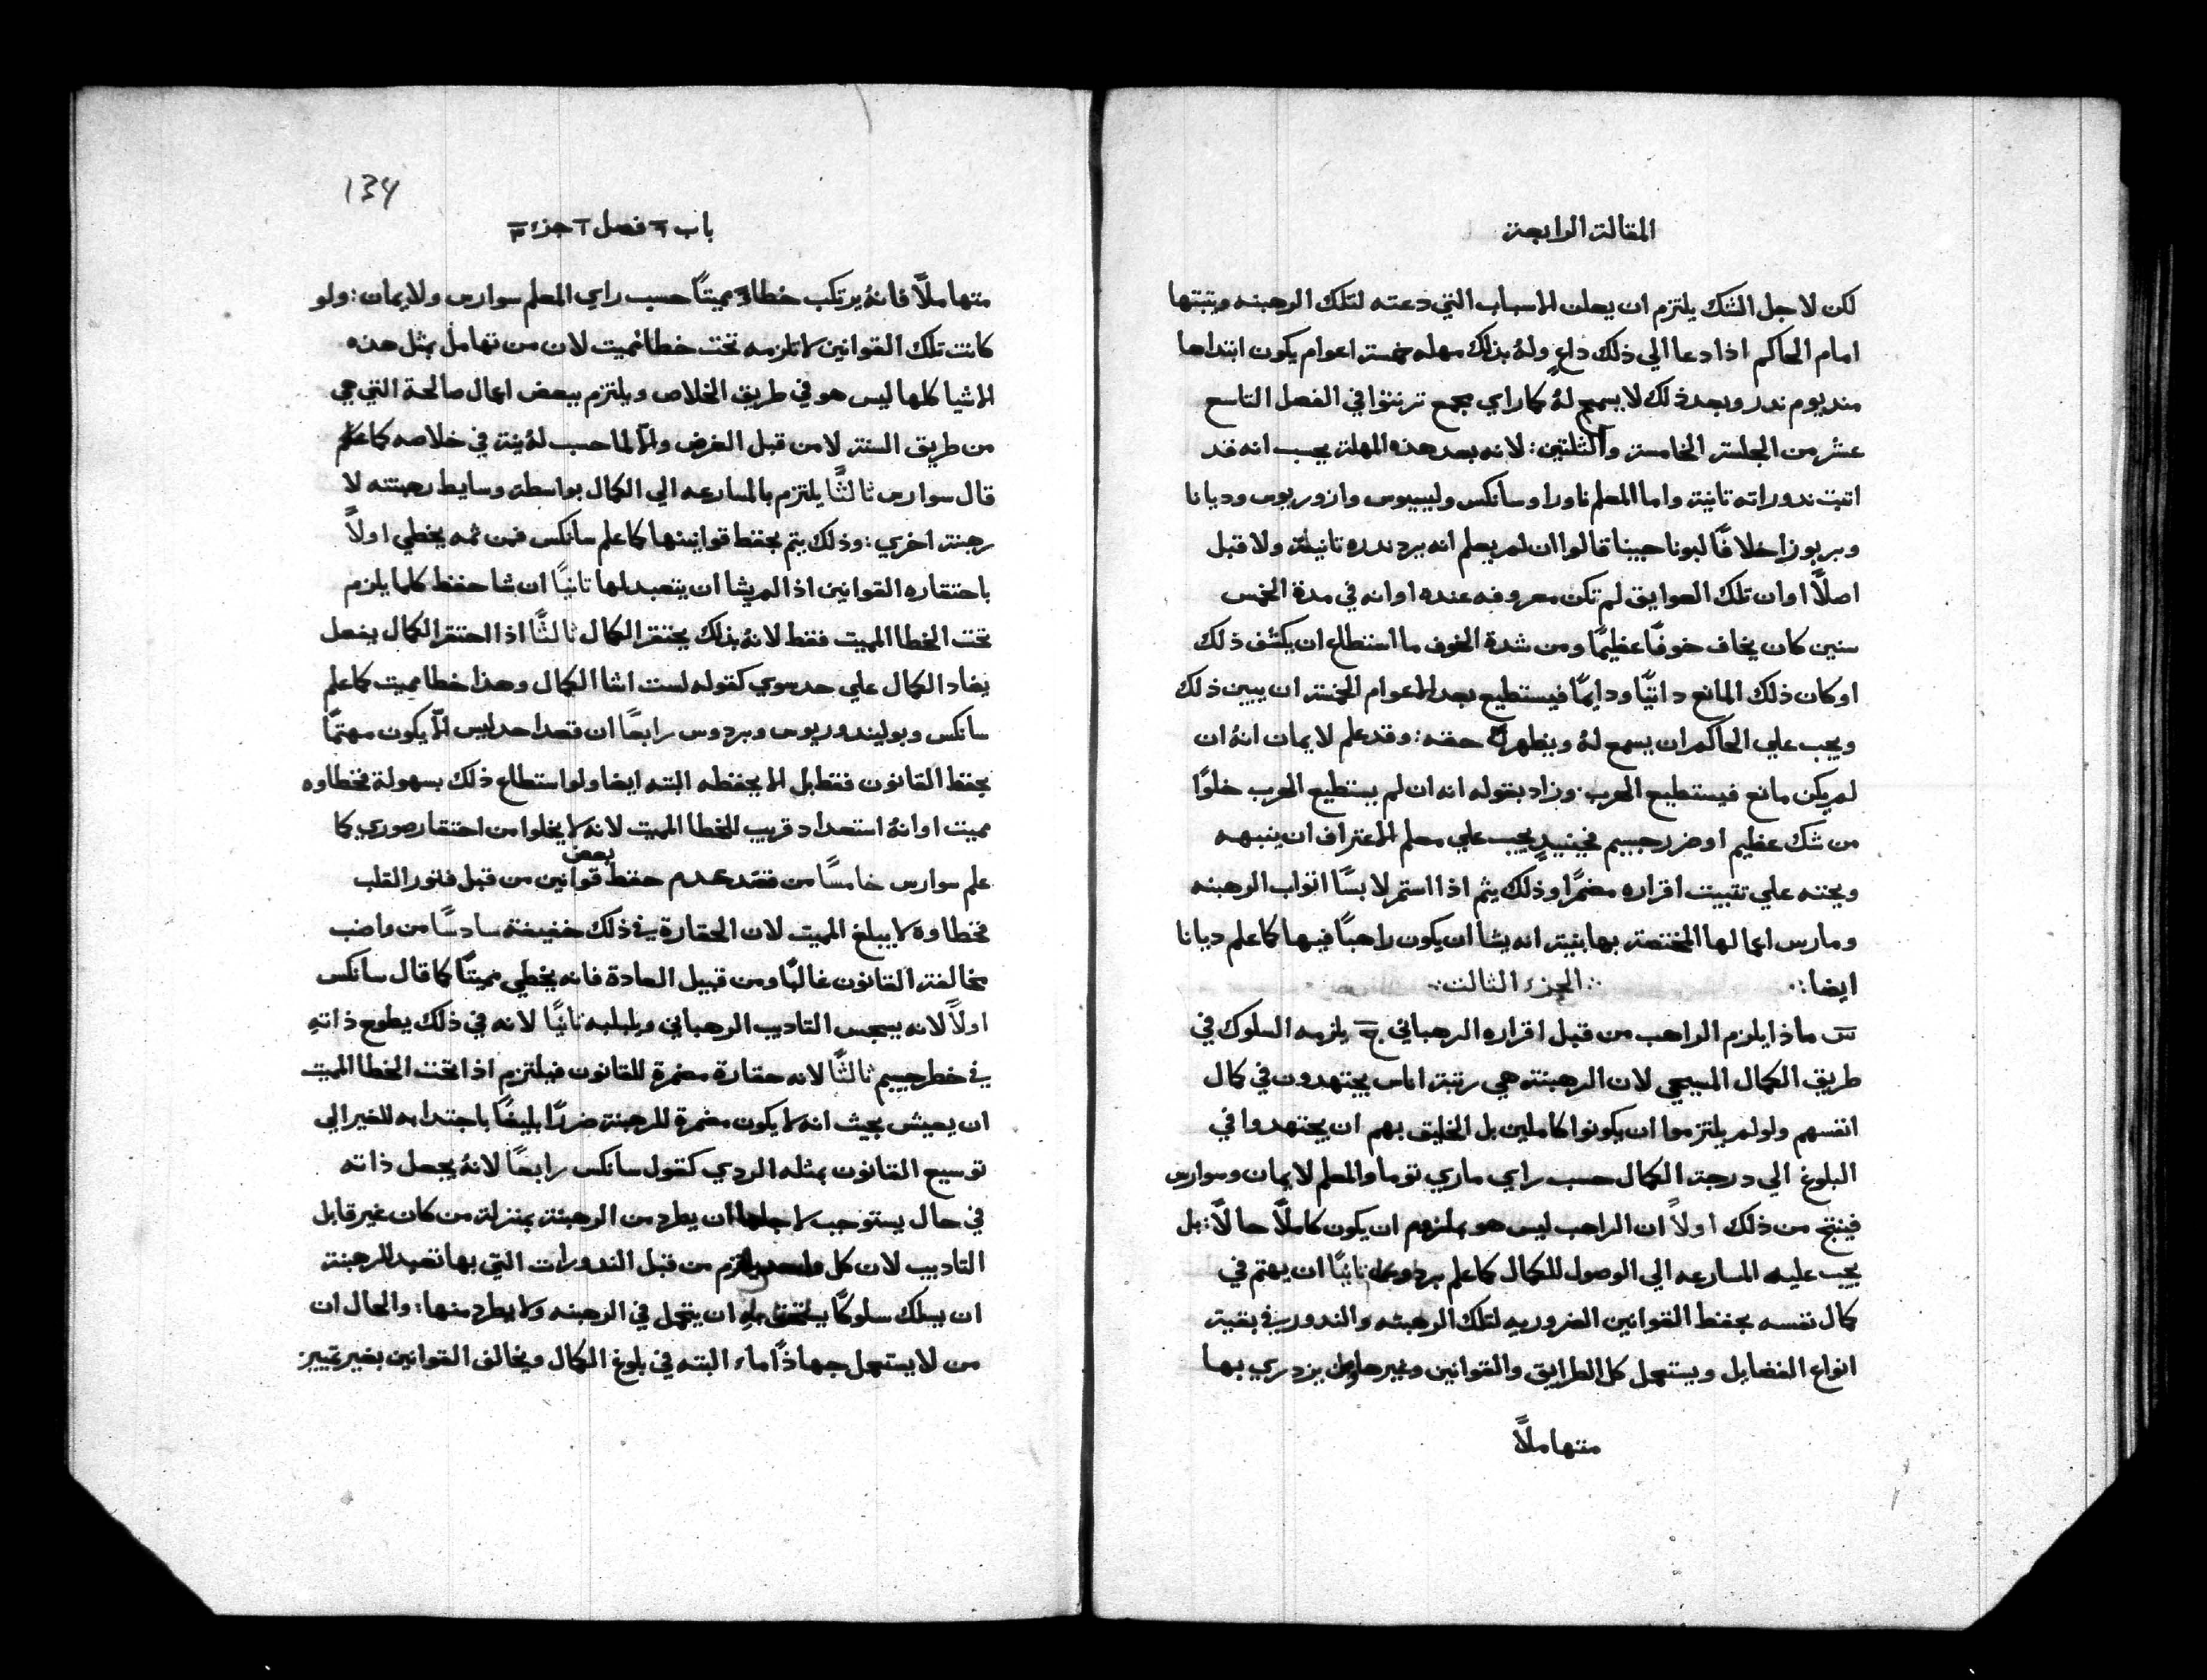 المقالة الرابعة
لكن لاجل الشك يلتزم ان يعلن الاسباب التي دعته لتلك الرهبنه ويثبتها
امام الحاكم اذا دعا الي ذلك داعٍ ولهُ بذلك مهله خمسة اعوام يكون ابتداها
منديوم ندر وبعد ذلك لا يسمح لهُ كما راي مجمع ترنتوا في الفصل التاسع
عشر من الجلسة الخامسة والثلثين: لانه بعد هذه المهلة يحسب انه قد
اثبت ندوراته تانية واما المعلم ناورا وسانكس وليسيوس وازوريوس وديانا
وبربوزا خلافًا لبوناحيينا قالوا ان لم يعلم انه يرد ندره تانيةً ولا قبل
اصلًا او ان تلك العوايق لم تكن معروفه عنده او انه في مدة الخمس
سنين كان يخاف خوفًا عظيمًا ومن شدة الخوف ما استطاع ان يكشف ذلك
او كان ذلك المانع داتيًا ودايمًا فيستطيع بعد الاعوام الخمسة ان يبين ذلك
ويجب علي الحاكم ان يسمع لهُ ويظهر له حقه: وقد علم لايمان انهُ ان
لم يكن مانع فيستطيع الهرب. وزاد بقوله انه ان لم يستطيع الهرب خلوًا
من شك عظيم او ضرر جسيم فحينيدٍ يجب علي معلم الاعتراف ان ينبهه
ويحثه علي تثبيت اقراره مضمرًا وذلك يتم اذا استمر لابسًا اثواب الرهبنه
ومارس اعمالها المختصة بها بنية انه يشا ان يكون راهبًا فيها كما علم ديانا
ايضا: الجزء الثالث
س ماذا يلزم الراهب من قبل اقراره الرهباني ج يلزمه السلوك في
طريق الكمال المسيحي لان الرهبنة هي رتبة اناس يجتهدون في كمال
انفسهم ولو لم يلتزموا ان يكونوا كاملين بل الخليق بهم ان يجتهدوا في
البلوغ الي درجة الكمال حسب راي ماري توما والمعلم لايمان وسوارس
فينتج من ذلك اولاً ان الراهب ليس هو بملزوم ان يكون كاملًا حالًا: بل
يجب عليه المسارعه الي الوصول للكمال كما علم ثانيًا ان يهتم في
كمال نفسه بحفظ القوانين الضروريه لتلك الرهبنه والندور في بقية
انواع الفضايل ويستعمل كل الطرايق والقوانين وغيرها ولمن يزدري بها
متهاملًا
134
باب ٦ فصل ٢ جزء ٣
متهاملًا فانهُ يرتكب خطاءً مميتًا حسب راي المعلم سوارس ولايمان: ولو
كانت تلك القوانين لا تلزمه تحت خطا مميت لان من تهامل بمثل هذه
الاشيا كلها ليس هو في طريق الخلاص ويلتزم ببعض اعمال صالحة التي هي
من طريق السنة لا من قبل الفرض والّا لما حسب لهُ نية في خلاصه كما علم
قال سوارس ثالثًا يلتزم بالمسارعه الي الكمال بواسطة وسايط رهبنته لا
رهبنة اخري: وذلك يتم بحفظ قوانينها كما علم سانكس فمن ثمه يخطي اولاً
باحتقاره القوانين اذا لم يشا ان يتعبد لها ثانيًا ان شا حفظ كلما يلزم
تحت الخطا المميت فقط لانهُ بذلك يحتقر الكمال ثالثًا اذا احتقر الكمال بفعل
يضاد الكمال علي حد سوي كقوله لست اشا الكمال وهذا خطا مميت كما علم
سانكس وبوليندوريوس وبردوس رابعًا ان قصد احد ليس الّا يكون مهتمًا
بحفظ القانون فقط بل الا يحفظه البته ايضا ولو استطاع ذلك بسهولة فخطاوه
مميت او انهُ استعداد قريب للخطا المميت لانه لا يخلوا من احتقار صوري كما
علم سوارس خامسًا من فقد عدم حفظ بعض قوانين من قبل فتور القلب
فخطاوه لا يبلغ المميت لان الحقارة في ذلك خفيفة سادسًا من واضب
مخالفة القانون غالبًا ومن قبيل العادة فانه يخطي مميتًا كما قال سانكس
اولًا لانه يبجس التاديب الرهباني ويلبلبه ثانيًا لانه في ذلك يطوح ذاته
في خطر جسيم ثالثًا لانه حقارة مضمرة للقانون فيلتزم اذا تحت الخطا المميت
ان يعيش بحيث انه لا يكون مضرة للرهبنة ضررًا بليغًا باجتدابه للغير الي
توسيع القانون بمثله الردي كقول سانكس رابعًا لانهُ يجعل ذاته
في حال يستوجب لاجلها ان يطرد من الرهبنة بمنزلة من كان غير قابل
التاديب لان كل واحد يلتزم من قبل الندورات التي بها تعبد للرهبنة
ان يسلك سلوكًا يستحق به ان يتحمل في الرهبنه ولا يطرد منها: والحال ان
من لا يستعمل جهاذًا ماء البته في بلوغ الكمال ويخالف القوانين بغير تمييز